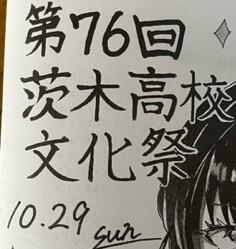 第76回
茨木高校
文化祭
10.29 sun